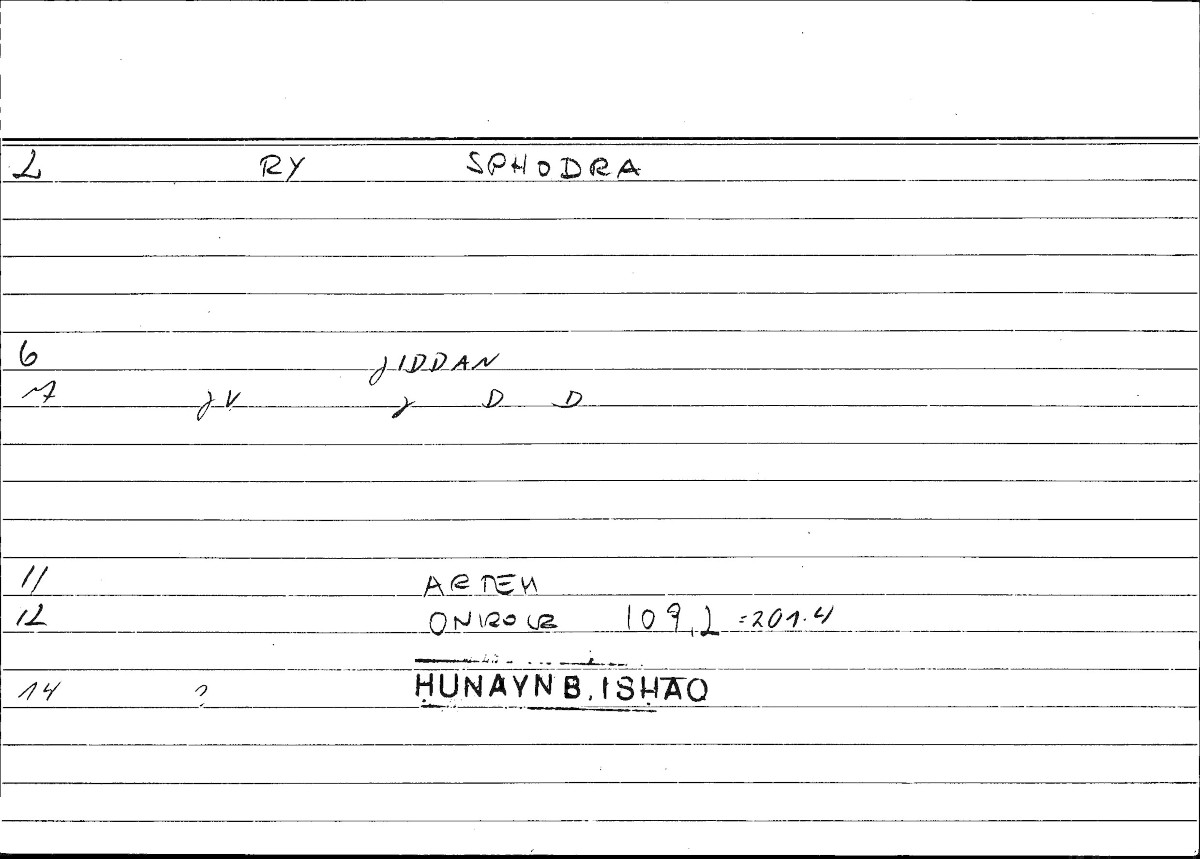 2 RY SPHODRA
6 JIDDAN
7 JV J D D
11 ARTEM
12 ONIROCR 109,2 =201.4
14 ? ḤUNAYN B. ISḤAQ